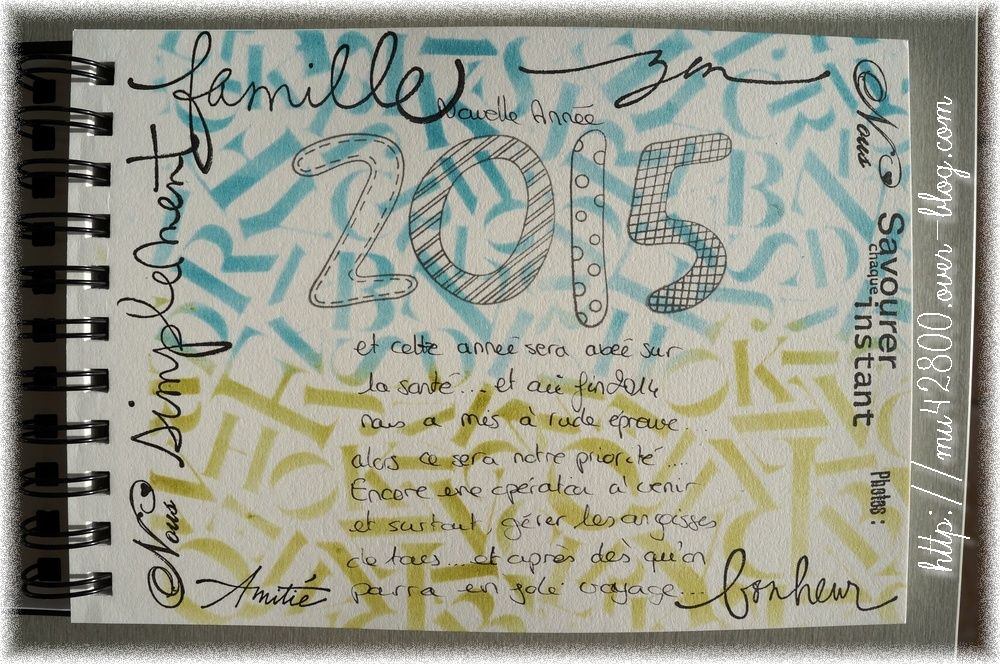 famille
zen
Nouvelle Année
2015
simplement
Nous
Savourer
chaque
instant
Photos :
et cette année sera axée sur
la santé.... et ce fin 2014
nous a mis à rude épreuve...
alors ce sera notre priorité ....
Encore une opération à venir
et surtout, gérer les angoisses
de tous.... et après dès qu'on
pourra en joli voyage...
Nous
Amitié
bonheur
http://mu42800.over-blog.com